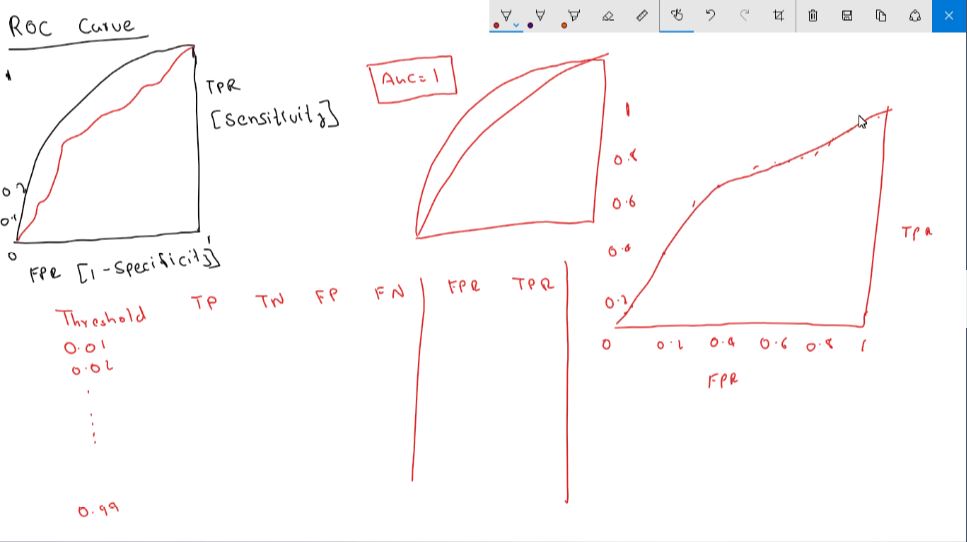 ROC Curve
1
TPR
[Sensitivity]
0.2
0.1
0
1
FPR [1-Specificity]
AUC=1
1
0.8
0.6
0.4
0.2
TPR
0 0.2 0.4 0.6 0.8 1
FPR
Threshold TP TN FP FN FPR TPR
0.01
0.02
0.99